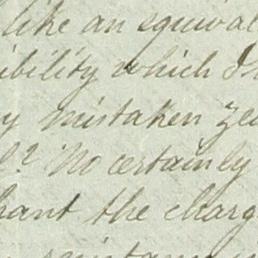 like an equival
ibility which I
y mistaken ze
l? No certainly
hant the charg